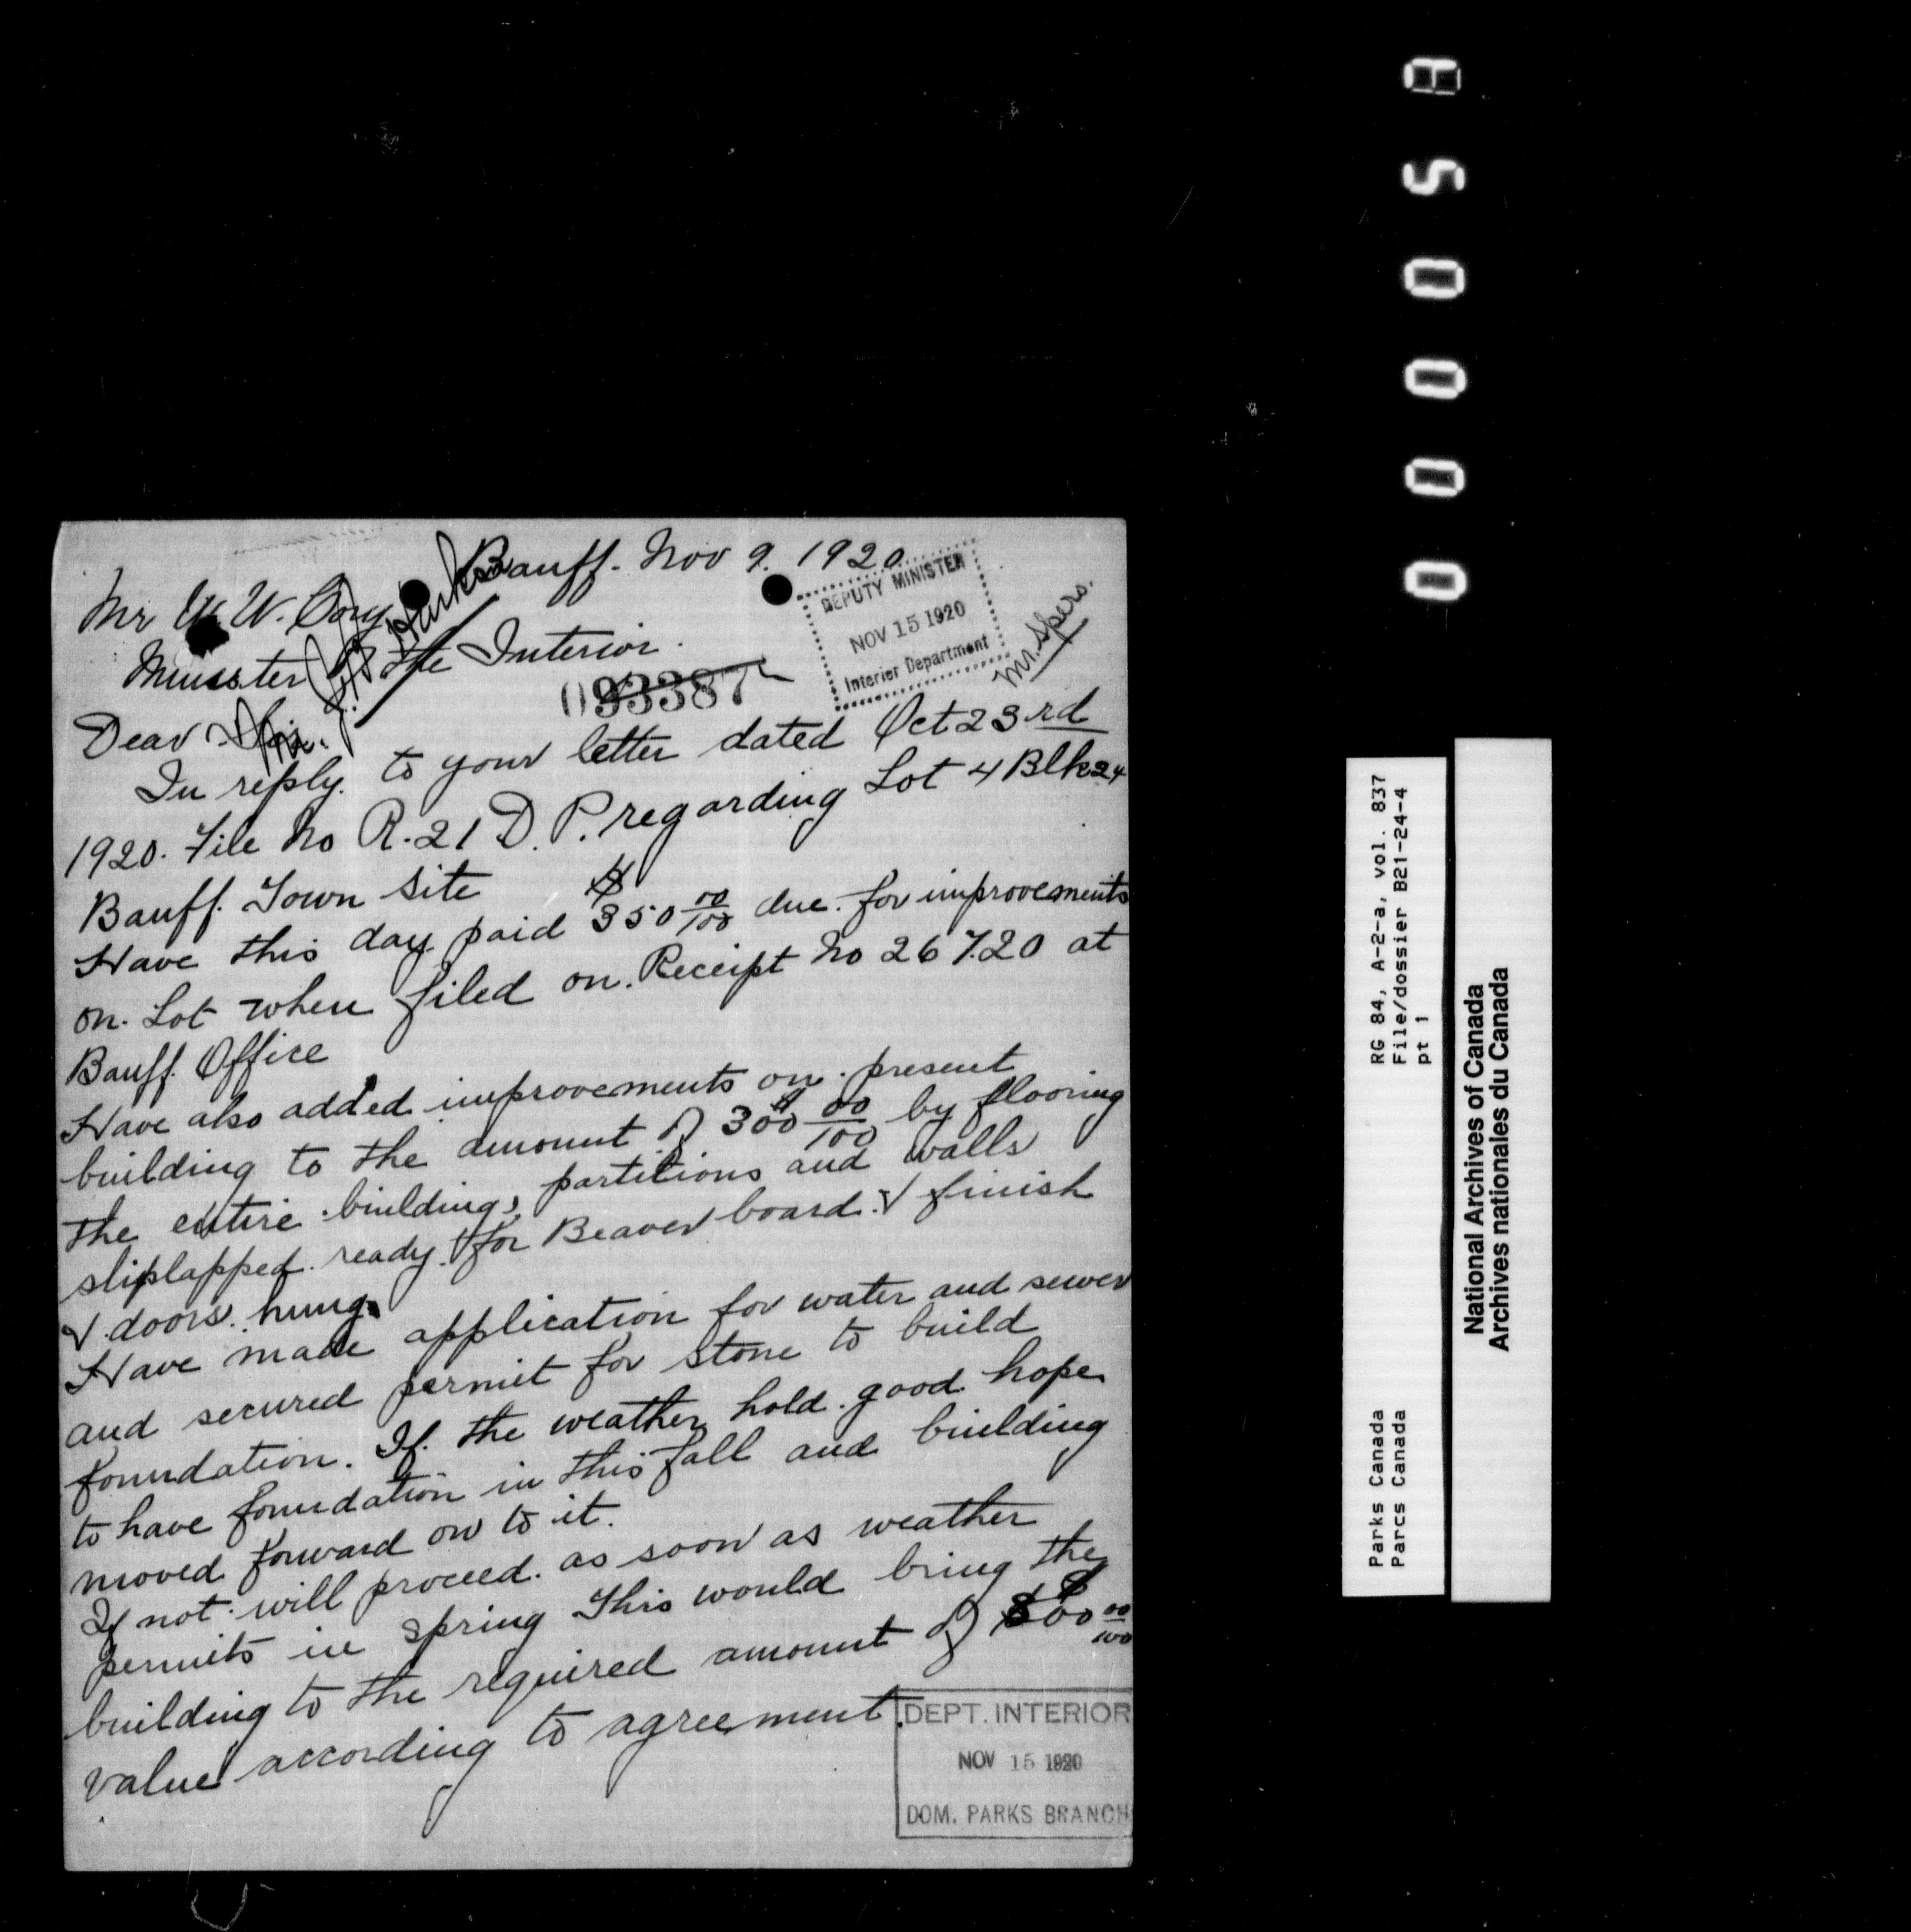 Banff. Nov 9. 1920
Mr W. W. Cory
Minister of the Interior.
J. B. Harkin
DEPUTY MINISTER
NOV 15 1920
Interior Department
Mr. Spero.
093387
Dear Sir.
In reply. to your letter dated Oct 23rd
1920. File No R. 21 D. P. regarding Lot 4 Blk 24
Banff. Town Site
Have this day paid $350 00/100 due. for improvements
on. Lot when filed on. Receipt No 26720 at
Banff. Office
Have also added improvements on. present
building to the amount of $300 00/100 by flooring
the entire building, partitions and walls
sliplapped. ready. for Beaver board. & finish
& doors. hung.
Have made application for water and sewer
and secured permit for stone to build
foundation. If. the weather hold. good. hope
to have foundation in this fall and building
moved forward on to it.
If not. will proceed. as soon as weather
permits in spring This would bring the
building to the required amount of $800 00/100
value according to agreement.
DEPT. INTERIOR
NOV 15 1920
DOM. PARKS BRANCH
00005A
RG 84, A-2-a, vol. 837
File/dossier B21-24-4
pt 1
Parks Canada
Parcs Canada
National Archives of Canada
Archives nationales du Canada